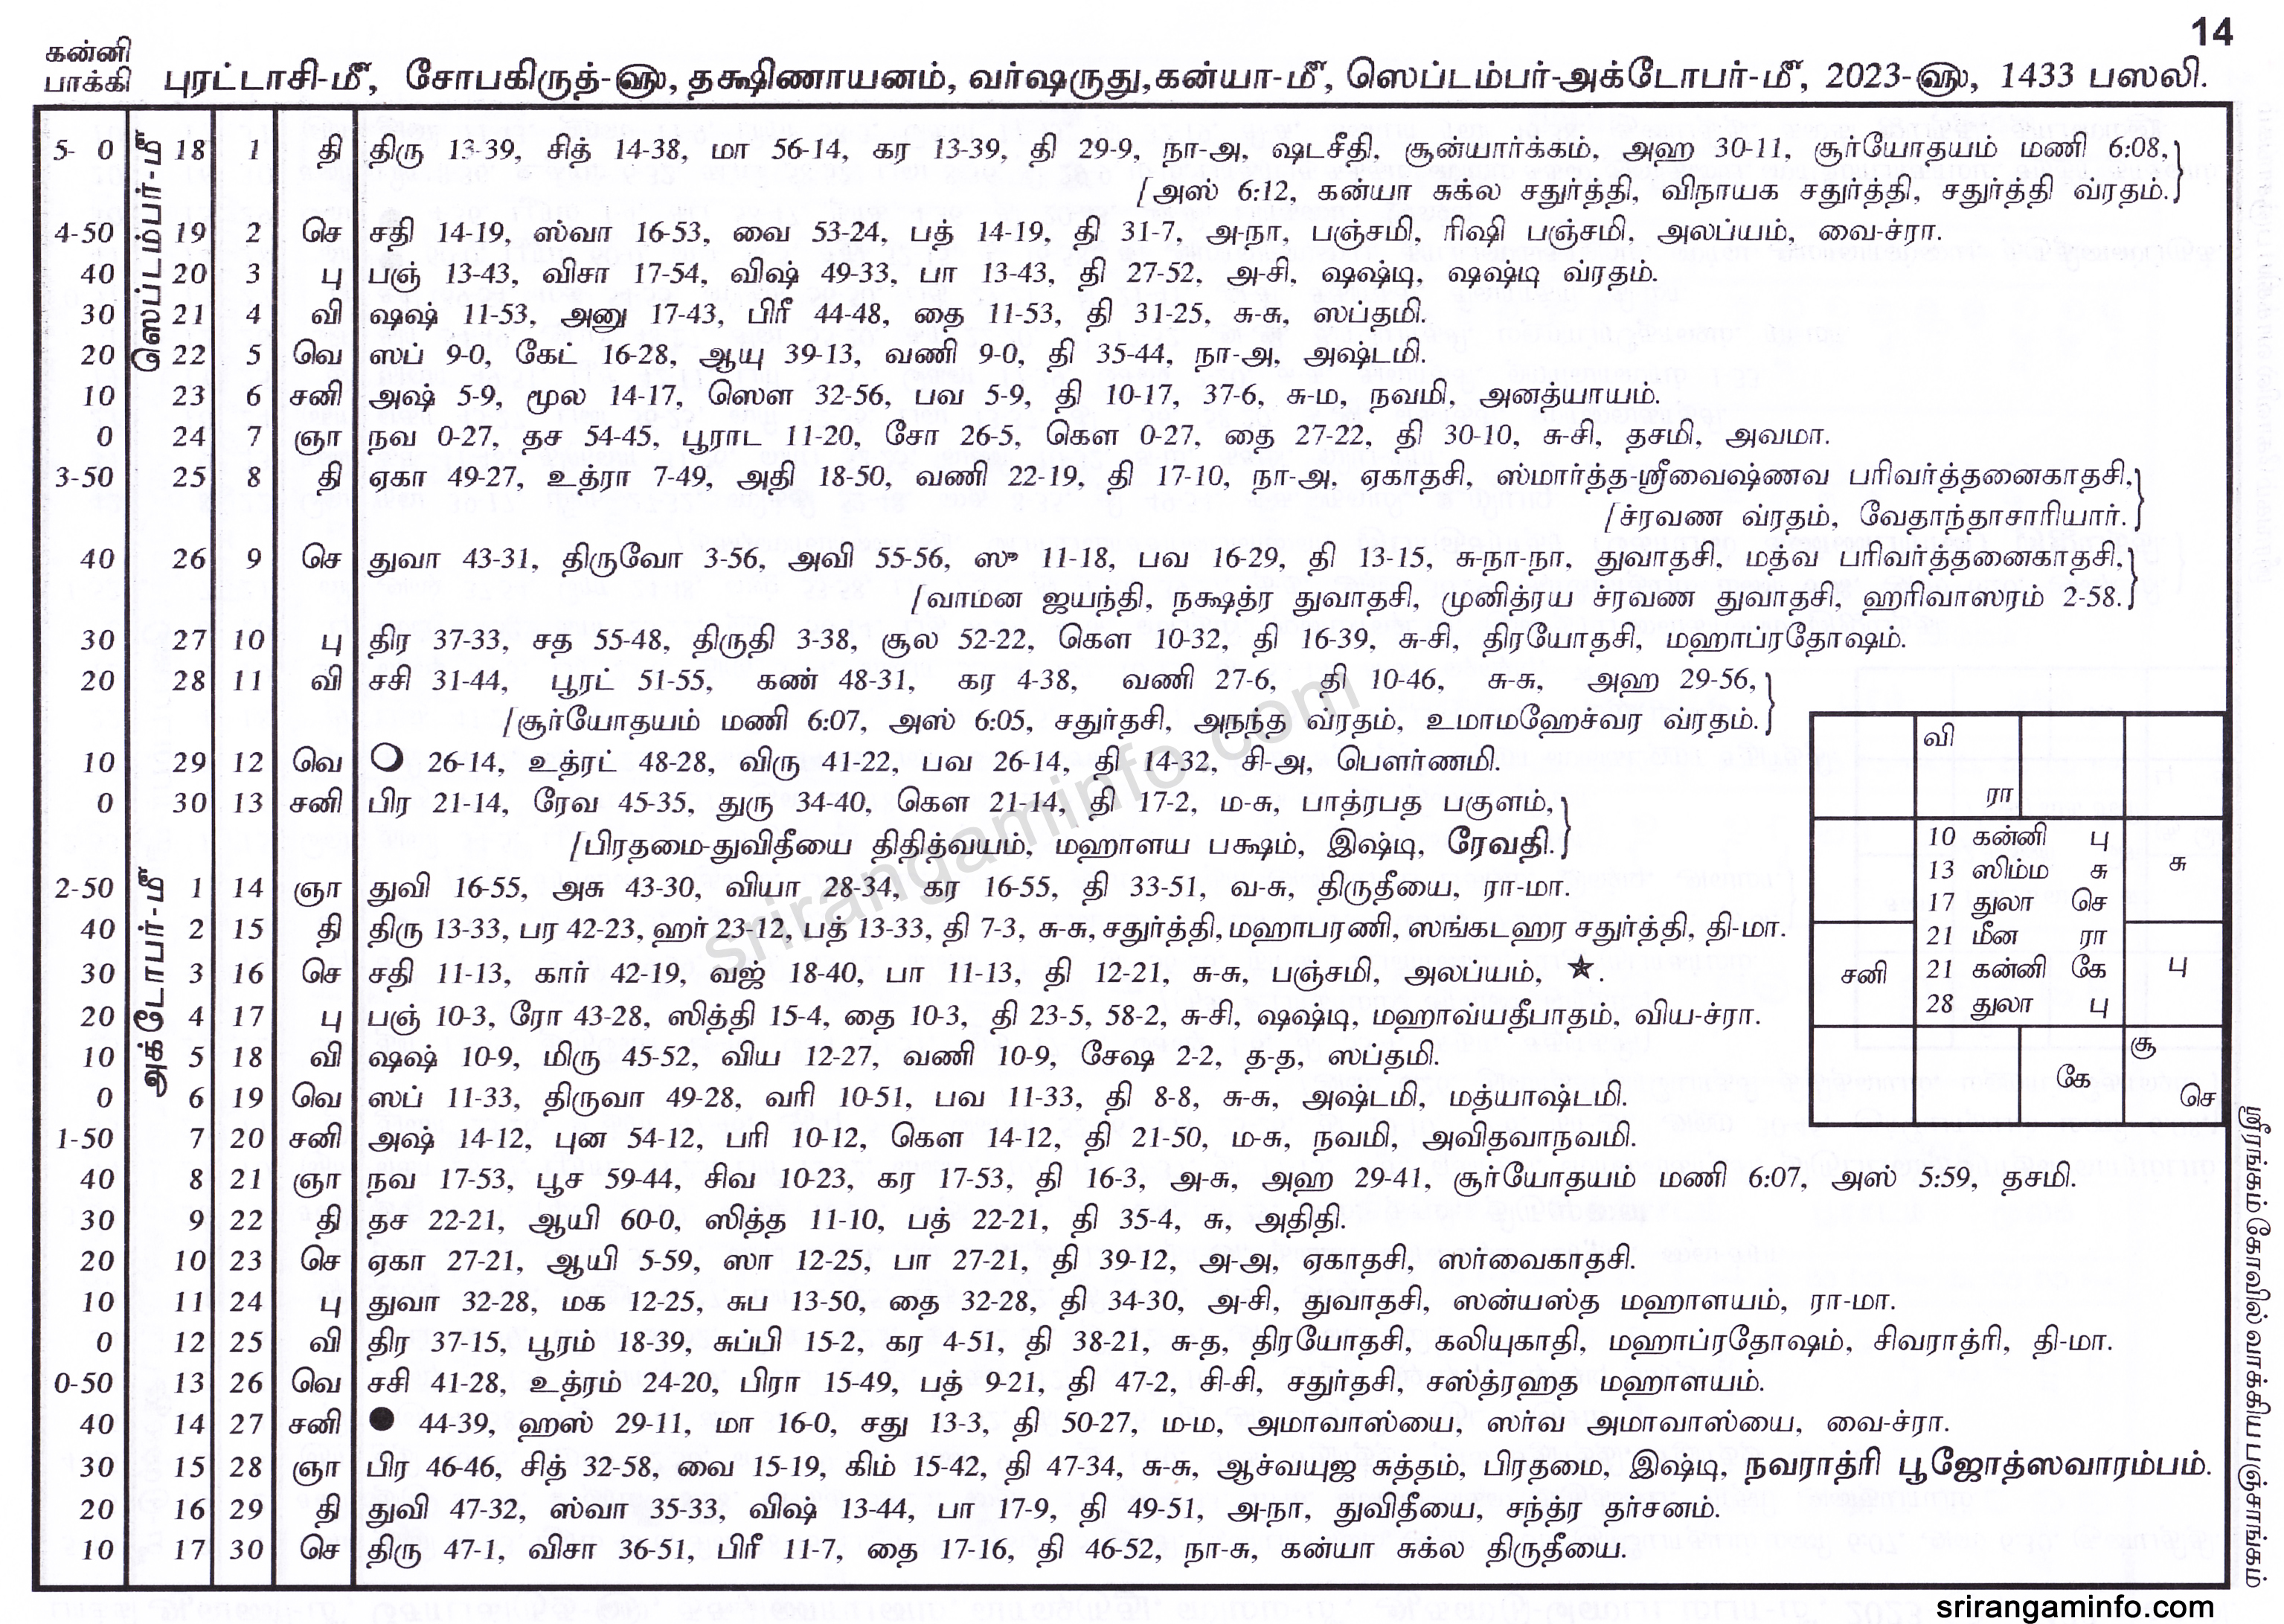 14
கன்னி
பாக்கி
புரட்டாசி-மீ, சோபகிருத்-௵, தக்ஷிணாயனம், வர்ஷருது,கன்யா-மீ, ஸெப்டம்பர்-அக்டோபர்-மீ, 2023-௵, 1433 பஸலி.
ஸெப்டம்பர்-மீ
5- 0 18 1 தி திரு 13-39, சித் 14-38, மா 56-14, கர 13-39, தி 29-9, நா-அ, ஷடசீதி, சூன்யார்க்கம், அஹ 30-11, சூர்யோதயம் மணி 6:08,}
[அஸ் 6:12, கன்யா சுக்ல சதுர்த்தி, விநாயக சதுர்த்தி, சதுர்த்தி வ்ரதம்.}
4-50 19 2 செ சதி 14-19, ஸ்வா 16-53, வை 53-24, பத் 14-19, தி 31-7, அ-நா, பஞ்சமி, ரிஷி பஞ்சமி, அலப்யம், வை-ச்ரா.
40 20 3 பு பஞ் 13-43, விசா 17-54, விஷ் 49-33, பா 13-43, தி 27-52, அ-சி, ஷஷ்டி, ஷஷ்டி வ்ரதம்.
30 21 4 வி ஷஷ் 11-53, அனு 17-43, பிரீ 44-48, தை 11-53, தி 31-25, சு-சு, ஸப்தமி.
20 22 5 வெ ஸப் 9-0, கேட் 16-28, ஆயு 39-13, வணி 9-0, தி 35-44, நா-அ, அஷ்டமி.
10 23 6 சனி அஷ் 5-9, மூல 14-17, ஸௌ 32-56, பவ 5-9, தி 10-17, 37-6, சு-ம, நவமி, அனத்யாயம்.
0 24 7 ஞா நவ 0-27, தச 54-45, பூராட 11-20, சோ 26-5, கௌ 0-27, தை 27-22, தி 30-10, சு-சி, தசமி, அவமா.
3-50 25 8 தி ஏகா 49-27, உத்ரா 7-49, அதி 18-50, வணி 22-19, தி 17-10, நா-அ, ஏகாதசி, ஸ்மார்த்த-ஸ்ரீவைஷ்ணவ பரிவர்த்தனைகாதசி,}
[ச்ரவண வ்ரதம், வேதாந்தாசாரியார்.}
40 26 9 செ துவா 43-31, திருவோ 3-56, அவி 55-56, ஸு 11-18, பவ 16-29, தி 13-15, சு-நா-நா, துவாதசி, மத்வ பரிவர்த்தனைகாதசி,}
[வாமன ஜயந்தி, நக்ஷத்ர துவாதசி, முனித்ரய ச்ரவண துவாதசி, ஹரிவாஸரம் 2-58.}
30 27 10 பு திர 37-33, சத 55-48, திருதி 3-38, சூல 52-22, கௌ 10-32, தி 16-39, சு-சி, திரயோதசி, மஹாப்ரதோஷம்.
20 28 11 வி சசி 31-44, பூரட் 51-55, கண் 48-31, கர 4-38, வணி 27-6, தி 10-46, சு-சு, அஹ 29-56,}
[சூர்யோதயம் மணி 6:07, அஸ் 6:05, சதுர்தசி, அநந்த வ்ரதம், உமாமஹேச்வர வ்ரதம்.}
10 29 12 வெ 26-14, உத்ரட் 48-28, விரு 41-22, பவ 26-14, தி 14-32, சி-அ, பௌர்ணமி.
0 30 13 சனி பிர 21-14, ரேவ 45-35, துரு 34-40, கௌ 21-14, தி 17-2, ம-சு, பாத்ரபத பகுளம்,}
[பிரதமை-துவிதீயை திதித்வயம், மஹாளய பக்ஷம், இஷ்டி, ரேவதி.}
அக்டோபர்-மீ
2-50 1 14 ஞா துவி 16-55, அசு 43-30, வியா 28-34, கர 16-55, தி 33-51, வ-சு, திருதீயை, ரா-மா.
40 2 15 தி திரு 13-33, பர 42-23, ஹர் 23-12, பத் 13-33, தி 7-3, சு-சு, சதுர்த்தி, மஹாபரணி, ஸங்கடஹர சதுர்த்தி, தி-மா.
30 3 16 செ சதி 11-13, கார் 42-19, வஜ் 18-40, பா 11-13, தி 12-21, சு-சு, பஞ்சமி, அலப்யம், ★.
20 4 17 பு பஞ் 10-3, ரோ 43-28, ஸித்தி 15-4, தை 10-3, தி 23-5, 58-2, சு-சி, ஷஷ்டி, மஹாவ்யதீபாதம், விய-ச்ரா.
10 5 18 வி ஷஷ் 10-9, மிரு 45-52, விய 12-27, வணி 10-9, சேஷ 2-2, த-த, ஸப்தமி.
0 6 19 வெ ஸப் 11-33, திருவா 49-28, வரி 10-51, பவ 11-33, தி 8-8, சு-சு, அஷ்டமி, மத்யாஷ்டமி.
1-50 7 20 சனி அஷ் 14-12, புன 54-12, பரி 10-12, கௌ 14-12, தி 21-50, ம-சு, நவமி, அவிதவாநவமி.
40 8 21 ஞா நவ 17-53, பூச 59-44, சிவ 10-23, கர 17-53, தி 16-3, அ-சு, அஹ 29-41, சூர்யோதயம் மணி 6:07, அஸ் 5:59, தசமி.
30 9 22 தி தச 22-21, ஆயி 60-0, ஸித்த 11-10, பத் 22-21, தி 35-4, சு, அதிதி.
20 10 23 செ ஏகா 27-21, ஆயி 5-59, ஸா 12-25, பா 27-21, தி 39-12, அ-அ, ஏகாதசி, ஸர்வைகாதசி.
10 11 24 பு துவா 32-28, மக 12-25, சுப 13-50, தை 32-28, தி 34-30, அ-சி, துவாதசி, ஸன்யஸ்த மஹாளயம், ரா-மா.
0 12 25 வி திர 37-15, பூரம் 18-39, சுப்பி 15-2, கர 4-51, தி 38-21, சு-த, திரயோதசி, கலியுகாதி, மஹாப்ரதோஷம், சிவராத்ரி, தி-மா.
0-50 13 26 வெ சசி 41-28, உத்ரம் 24-20, பிரா 15-49, பத் 9-21, தி 47-2, சி-சி, சதுர்தசி, சஸ்த்ரஹத மஹாளயம்.
40 14 27 சனி 44-39, ஹஸ் 29-11, மா 16-0, சது 13-3, தி 50-27, ம-ம, அமாவாஸ்யை, ஸர்வ அமாவாஸ்யை, வை-ச்ரா.
30 15 28 ஞா பிர 46-46, சித் 32-58, வை 15-19, கிம் 15-42, தி 47-34, சு-சு, ஆச்வயுஜ சுத்தம், பிரதமை, இஷ்டி, நவராத்ரி பூஜோத்ஸவாரம்பம்.
20 16 29 தி துவி 47-32, ஸ்வா 35-33, விஷ் 13-44, பா 17-9, தி 49-51, அ-நா, துவிதீயை, சந்த்ர தர்சனம்.
10 17 30 செ திரு 47-1, விசா 36-51, பிரீ 11-7, தை 17-16, தி 46-52, நா-சு, கன்யா சுக்ல திருதீயை.
வி
ரா
10 கன்னி பு
13 ஸிம்ம சு
17 துலா செ
21 மீன ரா
21 கன்னி கே
28 துலா பு
சு
சனி
பு
கே
சூ
செ
ஸ்ரீரங்கம் கோவில் வாக்கிய பஞ்சாங்கம்
srirangaminfo.com
srirangaminfo.com